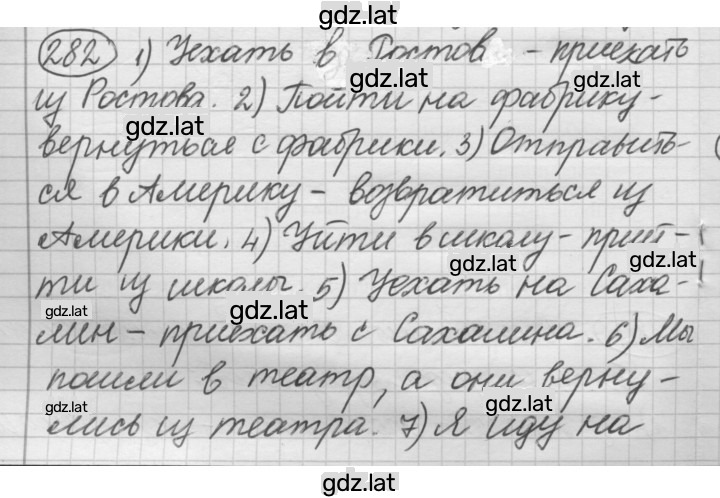 gdz.lat
282 1) Уехать в Ростов - приехать
gdz.lat
из Ростова. 2) Пойти на фабрику -
gdz.lat
вернуться с фабрики. 3) Отправить-
ся в Америку - возвратиться из
Америки. 4) Уйти в школу - прий-
gdz.lat gdz.lat
ти из школы. 5) Уехать на Саха-
gdz.lat
лин - приехать с Сахалина. 6) Мы
пошли в театр, а они верну-
gdz.lat gdz.lat
лись из театра. 7) Я иду на
gdz.lat